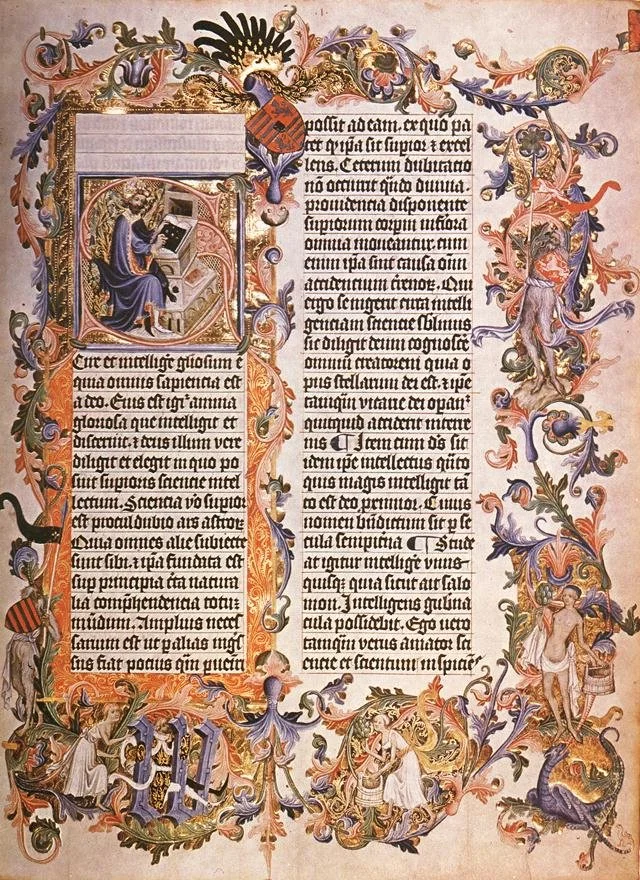 Scire et intellige gliosum ē
quia omnis sapiencia est
a deo. Eius est igr̄ anima
gloriosa que intelligit et
discernit. z deus illum vere
diligit et elegit in quo po
suit supioris sciencie intel
lectum. Sciencia vo supior
est procul dubio ars astroꝝ
Quia omnes alie subiecte
sunt sibi. z ipa fundata est
sup principia
lia comphendencia totuꝫ
mūdum. Amplius neces
sarium est ut p alias
possit ad eam. ex quo pa
tet q ipa sit supior z excel
lens. Ceterum dubitatio
nō occurrit qūdo diuina
prouidencia disponente
supiorum corpm inferiora
omnia moueantur. cum
enim ipa sint causa oīm
accidentium Qui
ergo se ingerit circa intelli
genciam sciencie sblimis
sic diligit deum cognosce
omnium creatorem quia o
pus stellarum dei est. z ipe
tamqm vicarie dei opanť
quitquid accidit in terre
nis ¶ Item cum ds sit
idem ipe intellectus qūto
quis magis intelligit tā
to est deo proximior. Cuius
nomen bndictum sit p se
cula sempiterna ¶ Stude
at igitur intellige vnus
quisqꝫ quia sicut ait salo
mon. Intelligens gubna
cula possidebit. Ego vero
tamqm verus amator sci
encie et scientum in spicie
W